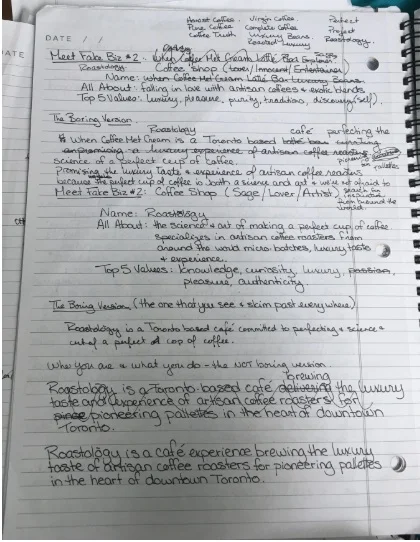 Honest Coffee. Virgin Coffee Perfect
Pure Coffee Complete Coffee Project
Coffee Truth Luxury Beans. Roastology.
Roasted Luxury
DATE / /
Meet Fake Biz #2: When Coffee Met Cream Latte Bar Explorer
Roastology Coffee Shop (Lover/Innocent/Entertainer) Sage
Name: When Coffee Met Cream Latte Bar Luxury Beans.
All About: falling in love with artisan coffees & exotic blends
Top 5 Values: luxury, pleasure, purity, tradition, discovery (self).
The Boring Version.
Roastology café perfecting the
When Coffee Met Cream is a Toronto based
luxury experience of artisan coffee
science of a perfect cup of coffee.
Promising the luxury taste & experience of artisan coffee roasters
because the perfect cup of coffee is both a science and art & we're not afraid to
Meet Fake Biz #2: Coffee Shop (Sage/Lover/Artist)
from around the
world
Name: Roastology
All About: the science & art of making a perfect cup of coffee
specializes in artisan coffee roasters from
around the world micro batches, luxury taste
& experience.
Top 5 Values: knowledge, curiosity, luxury, passion,
pleasure, authenticity.
The Boring Version (the one that you see & skim past everywhere)
Roastology is a Toronto based café committed to perfecting & science &
art of a perfect cup of coffee.
Who you are & what you do - the NOT boring version.
brewing
Roastology is a Toronto-based café delivering the luxury
taste and experience of artisan coffee roasters for
pioneering pallettes in the heart of downtown
Toronto.
Roastology is a café experience brewing the luxury
taste of artisan coffee roasters for pioneering pallettes
in the heart of downtown Toronto.